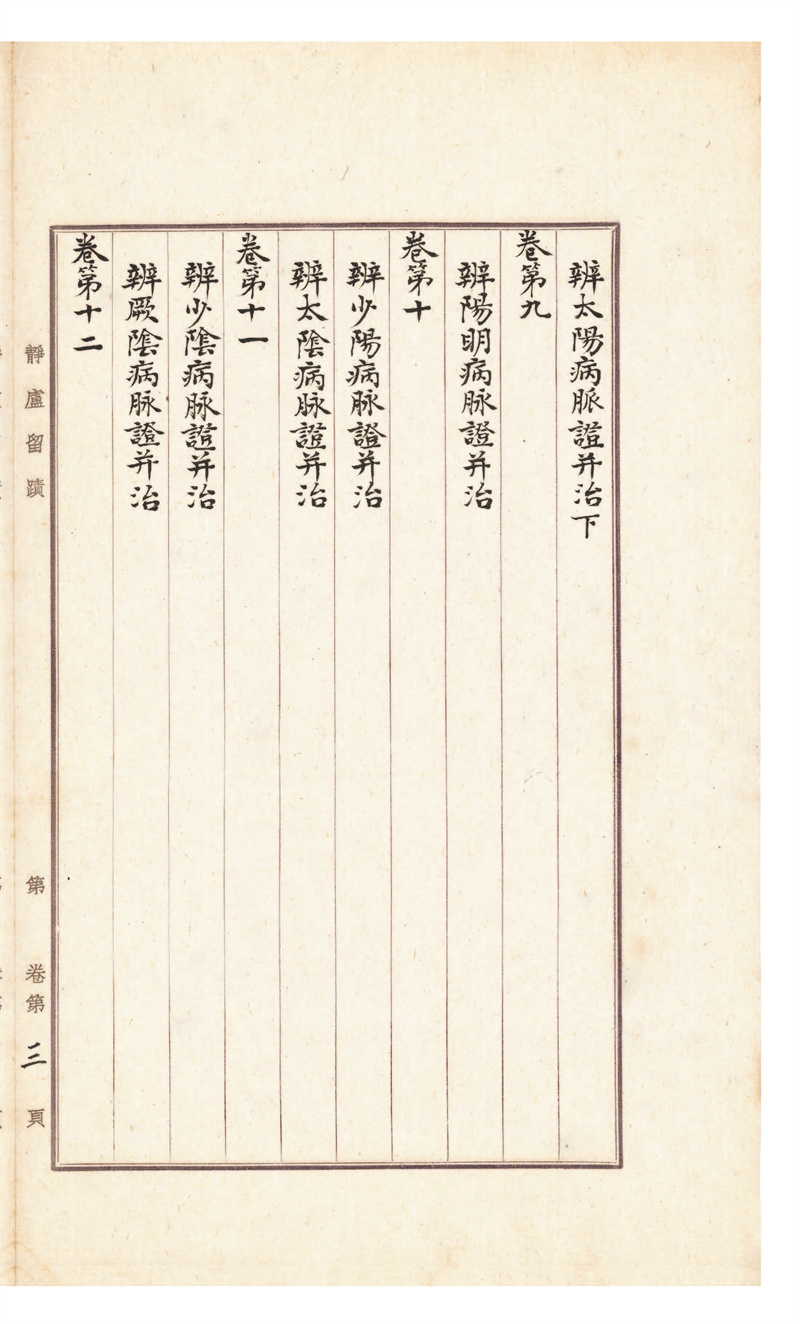 辨太陽病脈證并治下
卷第九
辨陽明病脉證并治
卷第十
辨少陽病脉證并治
辨太陰病脉證并治
卷第十一
辨少陰病脉證并治
辨厥陰病脉證并治
卷第十二
靜盧留蹟
第 卷第三頁